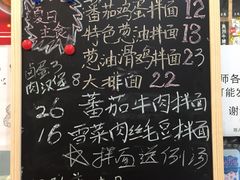 复习
主食
番茄鸡蛋拌面 12
特色葱油拌面 13
葱油滑鸡拌面 23
卤蛋3
肉汉堡8 大排面 22
26 番茄牛肉拌面
16 雪菜肉丝毛豆拌面
拌面送例汤
师各
可能发
谢